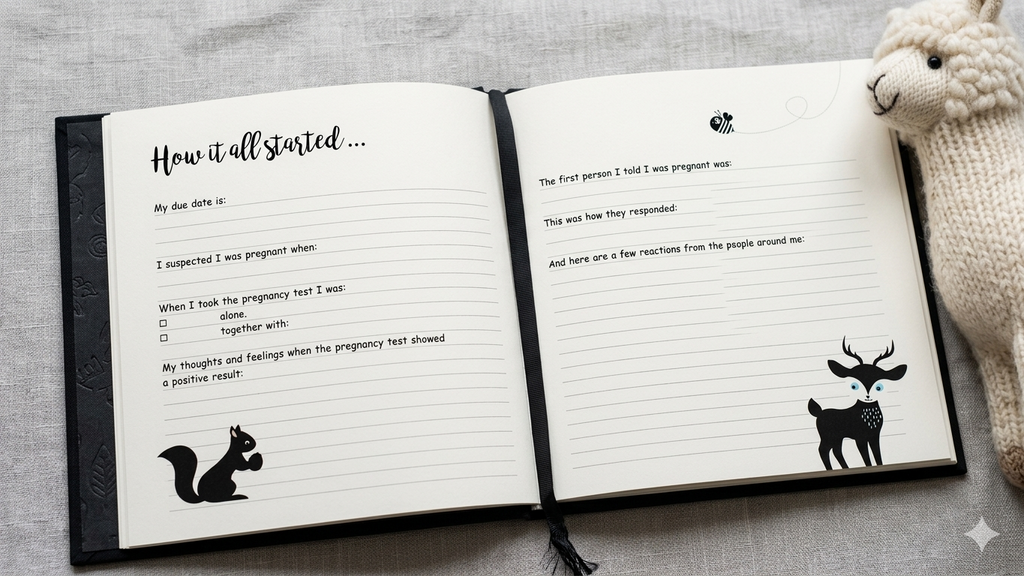 How it all started ...
My due date is:
I suspected I was pregnant when:
When I took the pregnancy test I was:
alone.
together with:
My thoughts and feelings when the pregnancy test showed
a positive result:
The first person I told I was pregnant was:
This was how they responded:
And here are a few reactions from the psople around me: